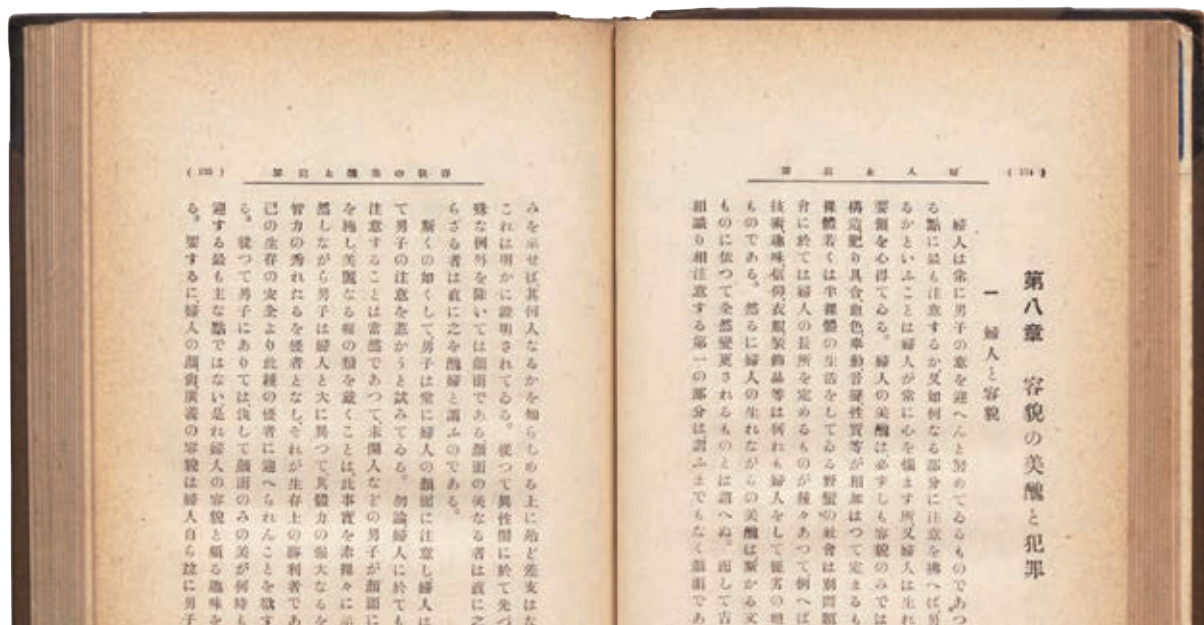 婦人と犯罪
(134)
第八章　容貌の美醜と犯罪
一　婦人と容貌
婦人は常に男子の意を迎へんと努めてゐるものであつ
る點に最も注意するか又如何なる部分に注意を拂へば男
るかといふことは婦人が常に心を惱ます所、又婦人は生れ
要領を心得てゐる。婦人の美醜は、必ずしも容貌のみでは
構造、肥り具合、血色、擧動、音聲、性質等が相加はつて定まるも
裸體若くは半裸體の生活をしてゐる野蠻の社會は別問題
會に於ては婦人の長所を定めるものが種々あつて例へば
技術、趣味、信仰、衣服、裝飾品等は何れも婦人をして優劣の地
ものである。然るに婦人の生れながらの美醜は斯かる文
ものに依つて全然變更されるものとは謂へぬ。而して吉
相識り相注意する第一の部分は、謂ふまでもなく顏面であ
容貌の美醜と犯罪
(135)
みを示せば其何人なるかを知らしめる上に殆ど差支はな
これは明かに證明されてゐる。從つて異性間に於て先づ
殊な例外を除いては顏面である顏面の美なる者は直に之
らざる者は直に之を醜婦と謂ふのである。
斯くの如くして男子は常に婦人の顏面に注意し婦人は
て男子の注意を惹かうと試みてゐる。勿論、婦人に於ても
注意することは當然であつて、未開人などの男子が顏面に
を施し美麗なる帽の類を戴くことは、此事實を赤裸々に示
然しながら男子は婦人と大に異つて其體力の強大なるを
智力の秀れたるを優者となし、それが生存上の勝利者であ
己の生存の安全より此種の優者に迎へられんことを欲す
る。從つて男子にありては、決して顏面のみの美が何時も
迎する最も主な點ではない是れ婦人の容貌と頗る趣味を
る。要するに、婦人の顏、廣義の容貌は婦人自ら竝に男子